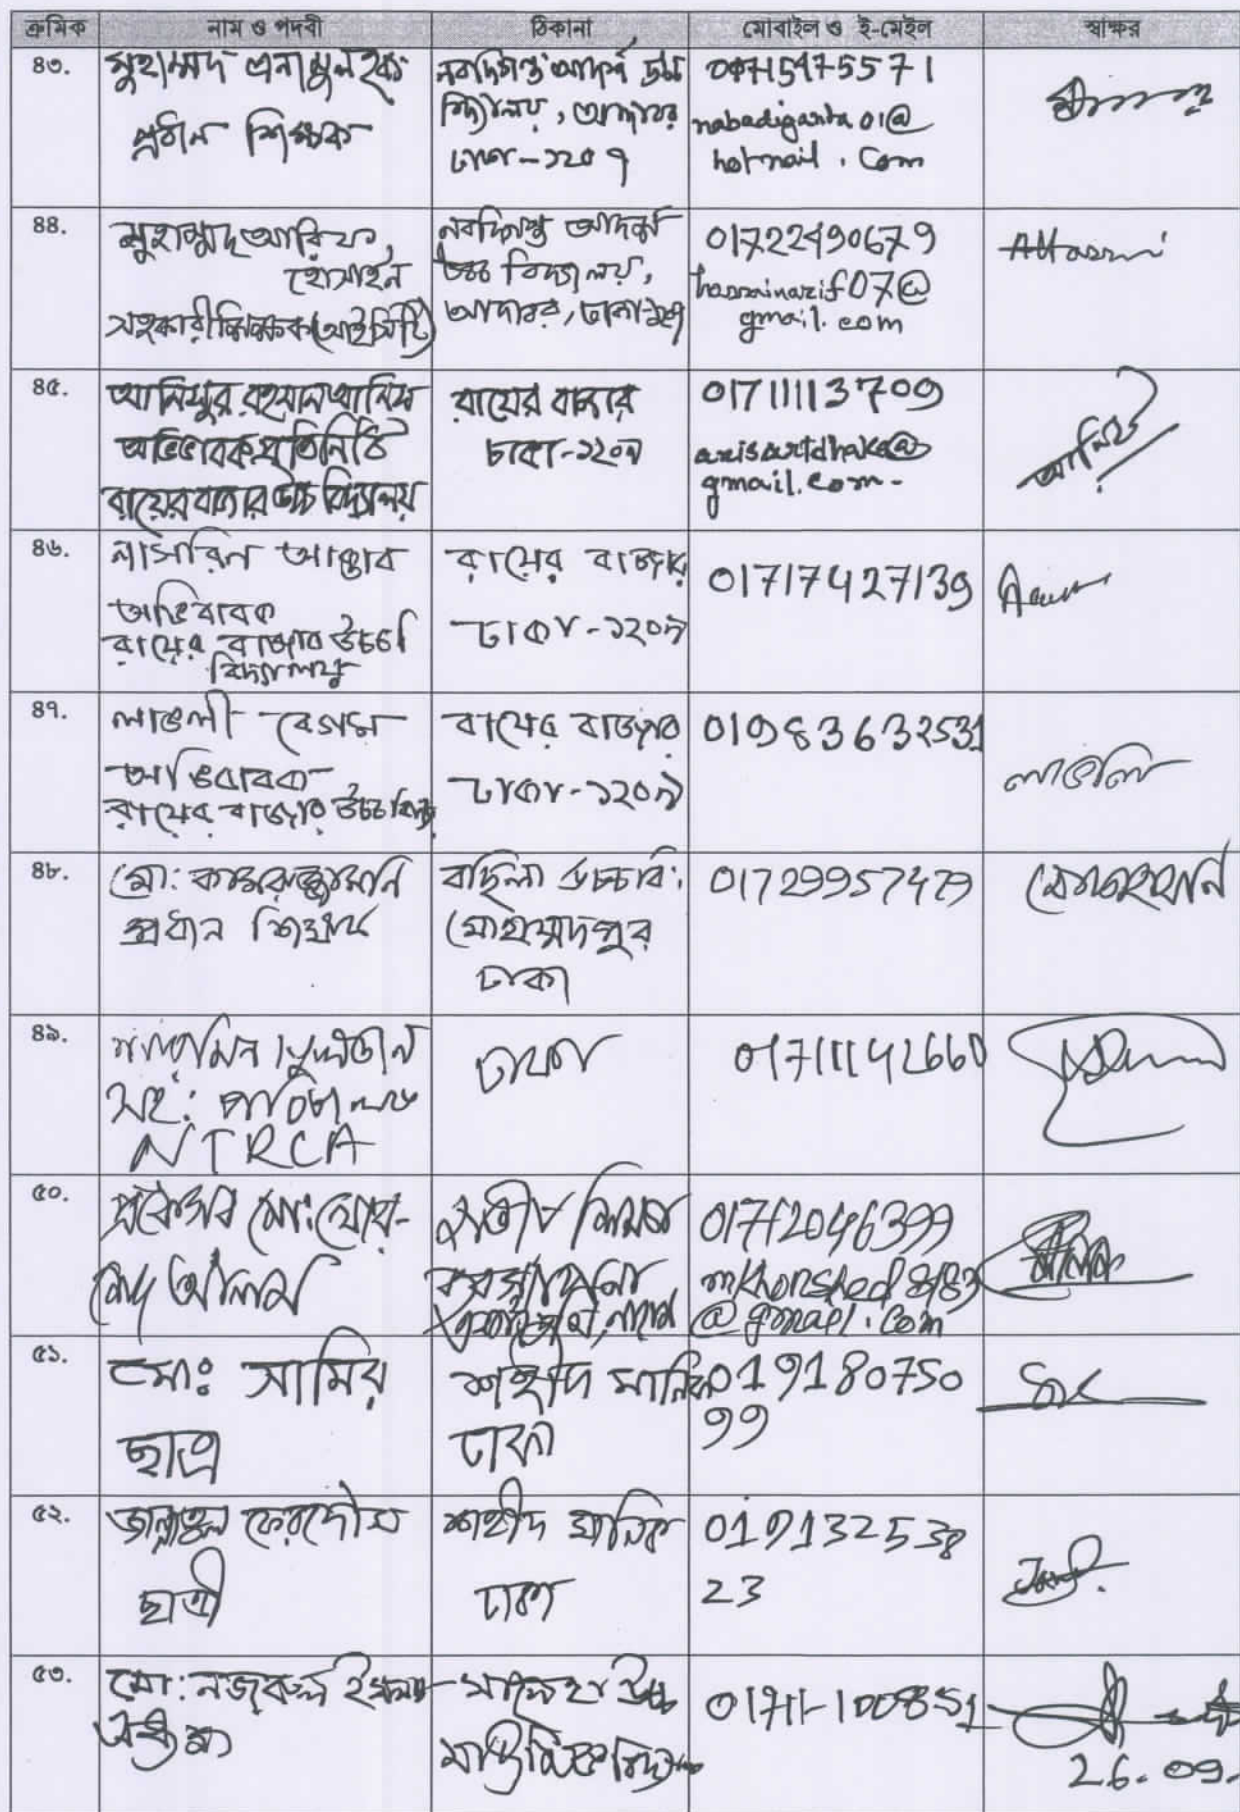 ক্রমিক নাম ও পদবী ঠিকানা মোবাইল ও ই-মেইল স্বাক্ষর
৪৩.
মুহাম্মদ এনামুল হক
প্রধান শিক্ষক
নবদিগন্ত আদর্শ উচ্চ
বিদ্যালয়, আদাবর
ঢাকা-১২০৭
01715475571
nabadiganta01@
hotmail.com
৪৪.
মুহাম্মদ আরিফ
হোসাইন
সহকারী শিক্ষক (আইসিটি)
নবদিগন্ত আদর্শ
উচ্চ বিদ্যালয়,
আদাবর, ঢাকা
01722490679
gmail.com
৪৫.
আনিসুর রহমান আনিস
অভিভাবক প্রতিনিধি
রায়ের বাজার উচ্চ বিদ্যালয়
রায়ের বাজার
ঢাকা-১২০৯
01711113709
anisartdhaka@
gmail.com-
আনিস
৪৬.
নাসরিন আক্তার
অভিবাবক
রায়ের বাজার উচ্চ
বিদ্যালয়
রায়ের বাজার
ঢাকা-১২০৯
01717427139
৪৭.
লাভলী বেগম
অভিবাবক
রায়ের বাজার উচ্চ
রায়ের বাজার
ঢাকা-১২০৯
01983632531
লাভলি
৪৮.
মো: কামরুজ্জামান
প্রধান শিক্ষক
বছিলা উচ্চ বি:
মোহাম্মদপুর
ঢাকা
01729957479
৪৯.
সহ: পরিচালক
NTRCA
ঢাকা
01711142660
৫০.
প্রফেসর মো: খোর-
শেদ আলম
01712046399
mkhorshed8183
@gmail.com
৫১.
মো: সামির
ছাত্র
শহীদ মানিক
ঢাকা
019180750
99
৫২.
জান্নাতুল ফেরদৌস
ছাত্রী
শহীদ মানিক
ঢাকা
019132538
23
৫৩.
মো: নজরুল ইসলাম
সালেহা উচ্চ
মাধ্যমিক
01711-100851
26.09.